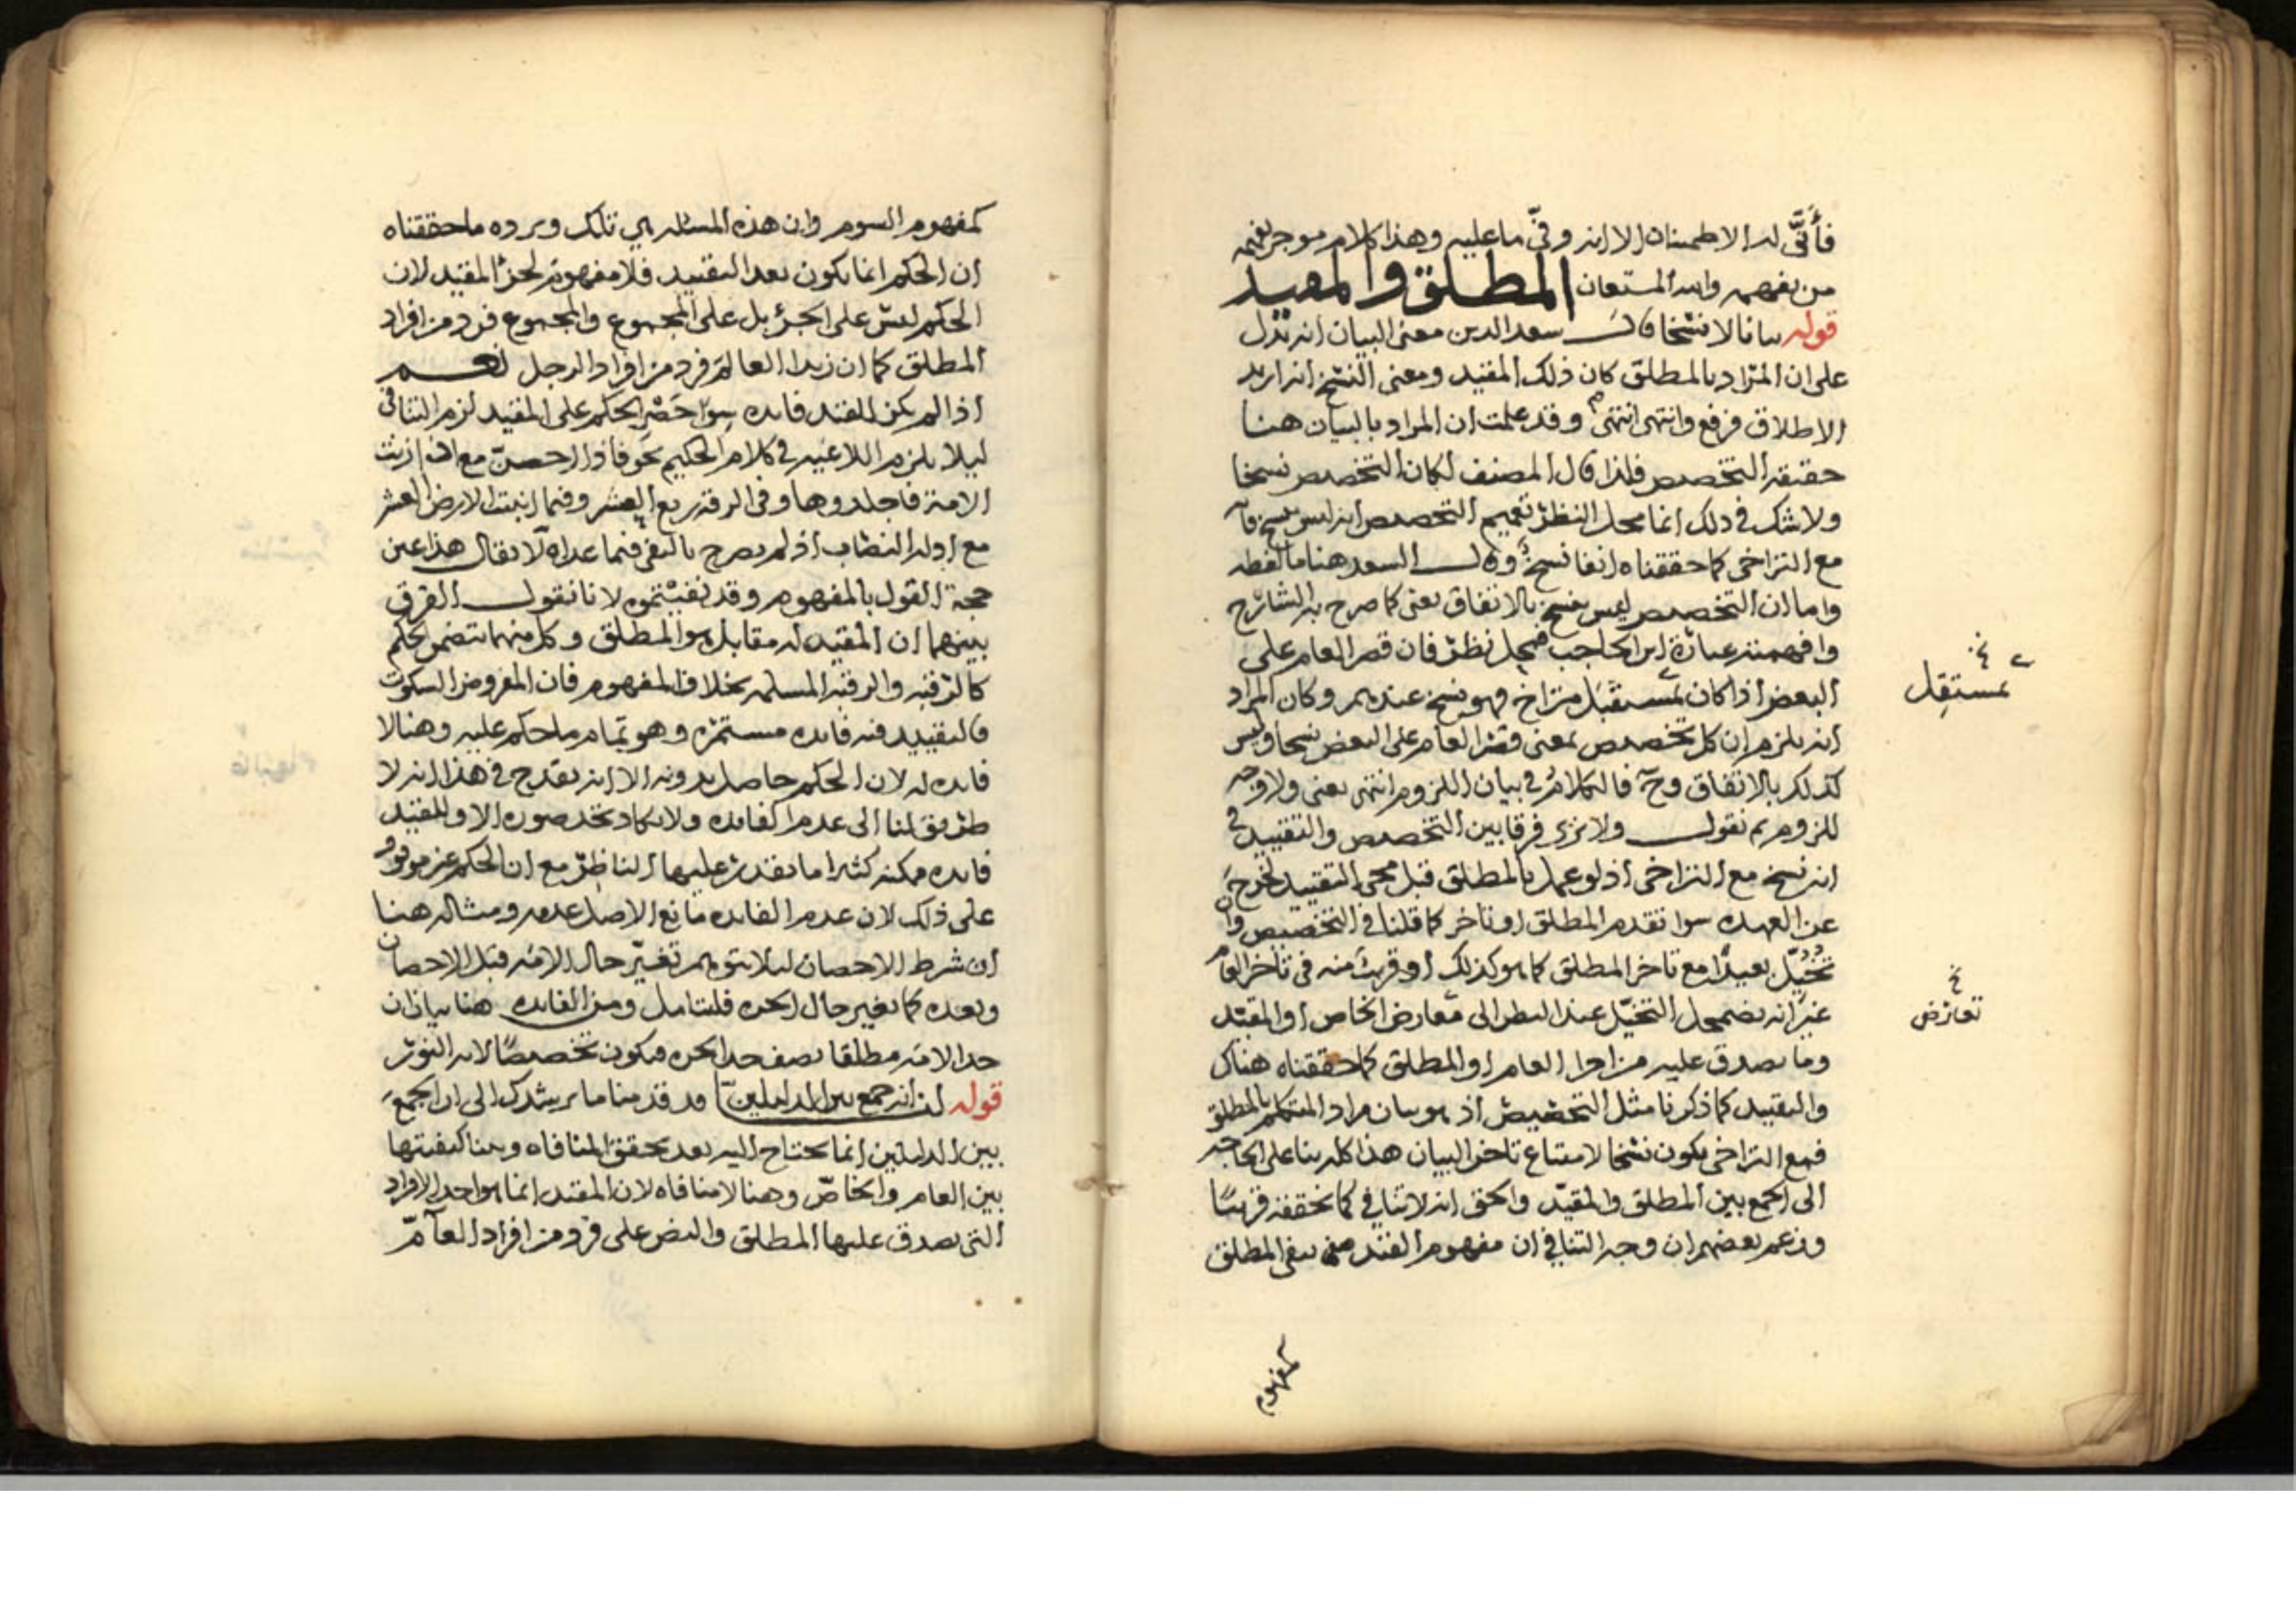 فأنّى له الاطمئنان الا انه وفّى ما عليه وهذا كلام موجز يفهمه
من يفهمه والله المستعان المطلق والمقيد
قوله بيانا لا نسخا قال سعد الدين معنى البيان انه يدل
على ان المراد بالمطلق كان ذلك المقيد ومعنى النسخ انه اريد
الاطلاق فرفع وانتهى انتهى وقد علمت ان المراد بالبيان هنا
حقيقه التخصيص فلذا قال المصنف لكان التخصيص نسخا
ولا شك في ذلك انما محل النظر تعميم التخصيص انه ليس بنسخ فانه
مع التراخى كما حققناه انفا نسخ وقال السعد هنا ما لفظه
واما ان التخصيص ليس بنسخ بالاتفاق يعنى كما صرح به الشارح
وافهمته عبارة ابن الحاجب فمحل نظر فان قصر العام على
البعض اذا كان بمستقبل متراخ فهو نسخ عندهم وكان المراد
انه يلزم ان كل تخصيص بمعنى قصر العام على البعض نسخا وليس
كذلك بالاتفاق وح فالكلام في بيان اللزوم انتهى يعنى ولا وجه
للزوم ثم نقول ولا نرى فرقا بين التخصيص والتقييد في
انه نسخ مع التراخى اذ لو عمل بالمطلق قبل مجى التقييد لخرج
عن العهده سوا تقدم المطلق او تاخر كما قلنا في التخصيص وان
تُخُيّل بعيدًا مع تاخر المطلق كما هو كذلك او قريب منه فى تاخر العام
غير انه يضمحل التخيّل عند النظر الى معارض الخاص او المقيد
وما يصدق عليه من اجزا العام او المطلق كما حققناه هناك
والتقييد كما ذكرنا مثل التخصيص اذ هو بيان مراد المتكلم بالمطلق
فمع التراخى يكون نسخا لامتناع تاخر البيان هذا كله بنا على الحاجه
الى الجمع بين المطلق والمقيّد والحق انه لا تنافي كما نحققه قريبًا
وزعم بعضهم ان وجه التنافي ان مفهوم القيد ينفى المطلق
نخ
بمستقل
نخ
تعارض
كمفهوم
كمفهوم السوم وان هذه المسئله هي تلك ويرده ما حققناه
ان الحكم انما يكون بعد التقييد فلا مفهوم لجزء المقيد لان
الحكم ليس على الجزء بل على المجموع والمجموع فرد من افراد
المطلق كما ان زيدا العالم فرد من افراد الرجل نعم
اذا لم يكن للقيد فايده سوا حصر الحكم على المقيد لزم التنافي
ليلا يلزم اللاغيه في كلام الحكيم نحو فاذا احصن مع اذا زنت
الامة فاجلدوها وفي الرقة ربع العشر وفيما انبتت الارض العشر
مع ادلة النصاب اذ لم يصرح بالنفى فيما عداه لا يقال هذا عين
حجة القول بالمفهوم وقد نفيتموه لانا نقول الفرق
بينهما ان المقيد له مقابل هو المطلق وكل منهما يتضمن الحكم
كالرقبه والرقبه المسلمه بخلاف المفهوم فان المفروض السكوت
فالتقييد فيه فايده مستمره وهو تمام ما حكم عليه وهنا لا
فايده له لان الحكم حاصل بدونه الا انه يقدح في هذا انه لا
طريق لنا الى عدم الفايده ولا يكاد تخد صوره الا وللقيد
فايده ممكنه كثيرا ما يقدر عليها الناظر مع ان الحكم غير موقوف
على ذلك لان عدم الفايده مانع الاصل عدمه ومثاله هنا
ان شرط الاحصان ليلا يتوهم تغيّر حال الامه قبل الاحصان
وبعده كما تغير حال الحره فليتامل ومن الفايده هنا بيان ان
حد الامه مطلقا نصف حد الحره فيكون تخصيصًا لايه النور
قوله لنا انه جمع بين الدليلين قد قدمنا ما يرشدك الى ان الجمع
بين الدليلين انما يحتاج اليه بعد تحقق المنافاه وبينا كيفيتها
بين العام والخاصّ وهنا لا منافاه لان المقيد انما هو احد الافراد
التى يصدق عليها المطلق والنص على فرد من افراد العآمّ